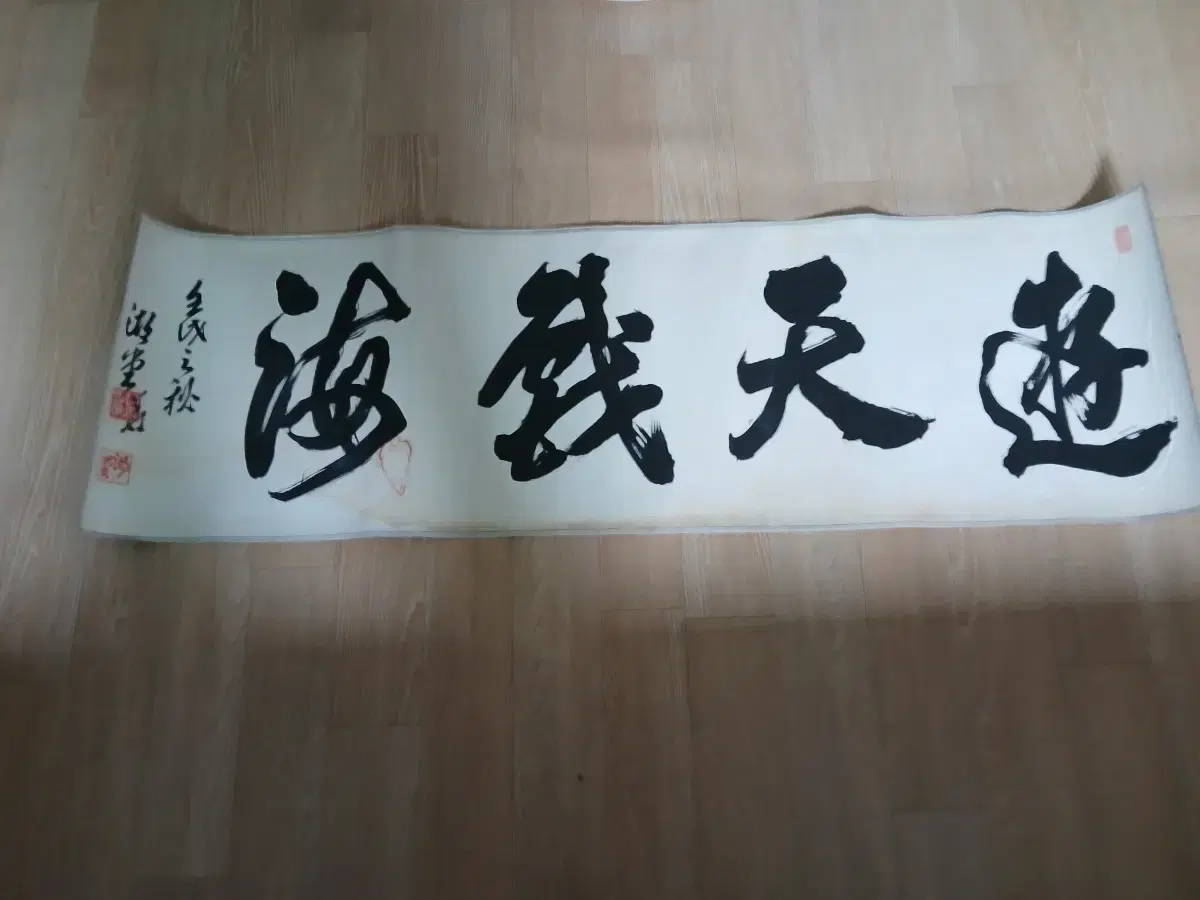 遊天戲海
壬戌之秋